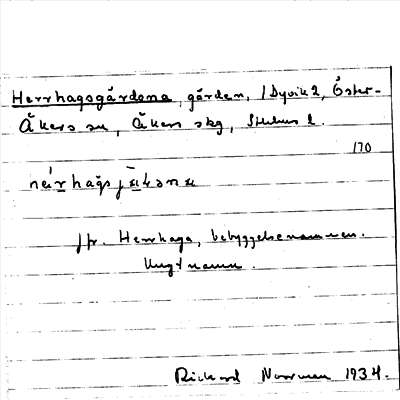 Herrhagsgårdena, gården, 1 Dyvik 2, Öster-
Åkers sn, Åkers skg, Sthlms l.
170
jfr. Herrhaga, bebyggelsenamnen.
Ungt namn.
Rickard Norrman 1934.